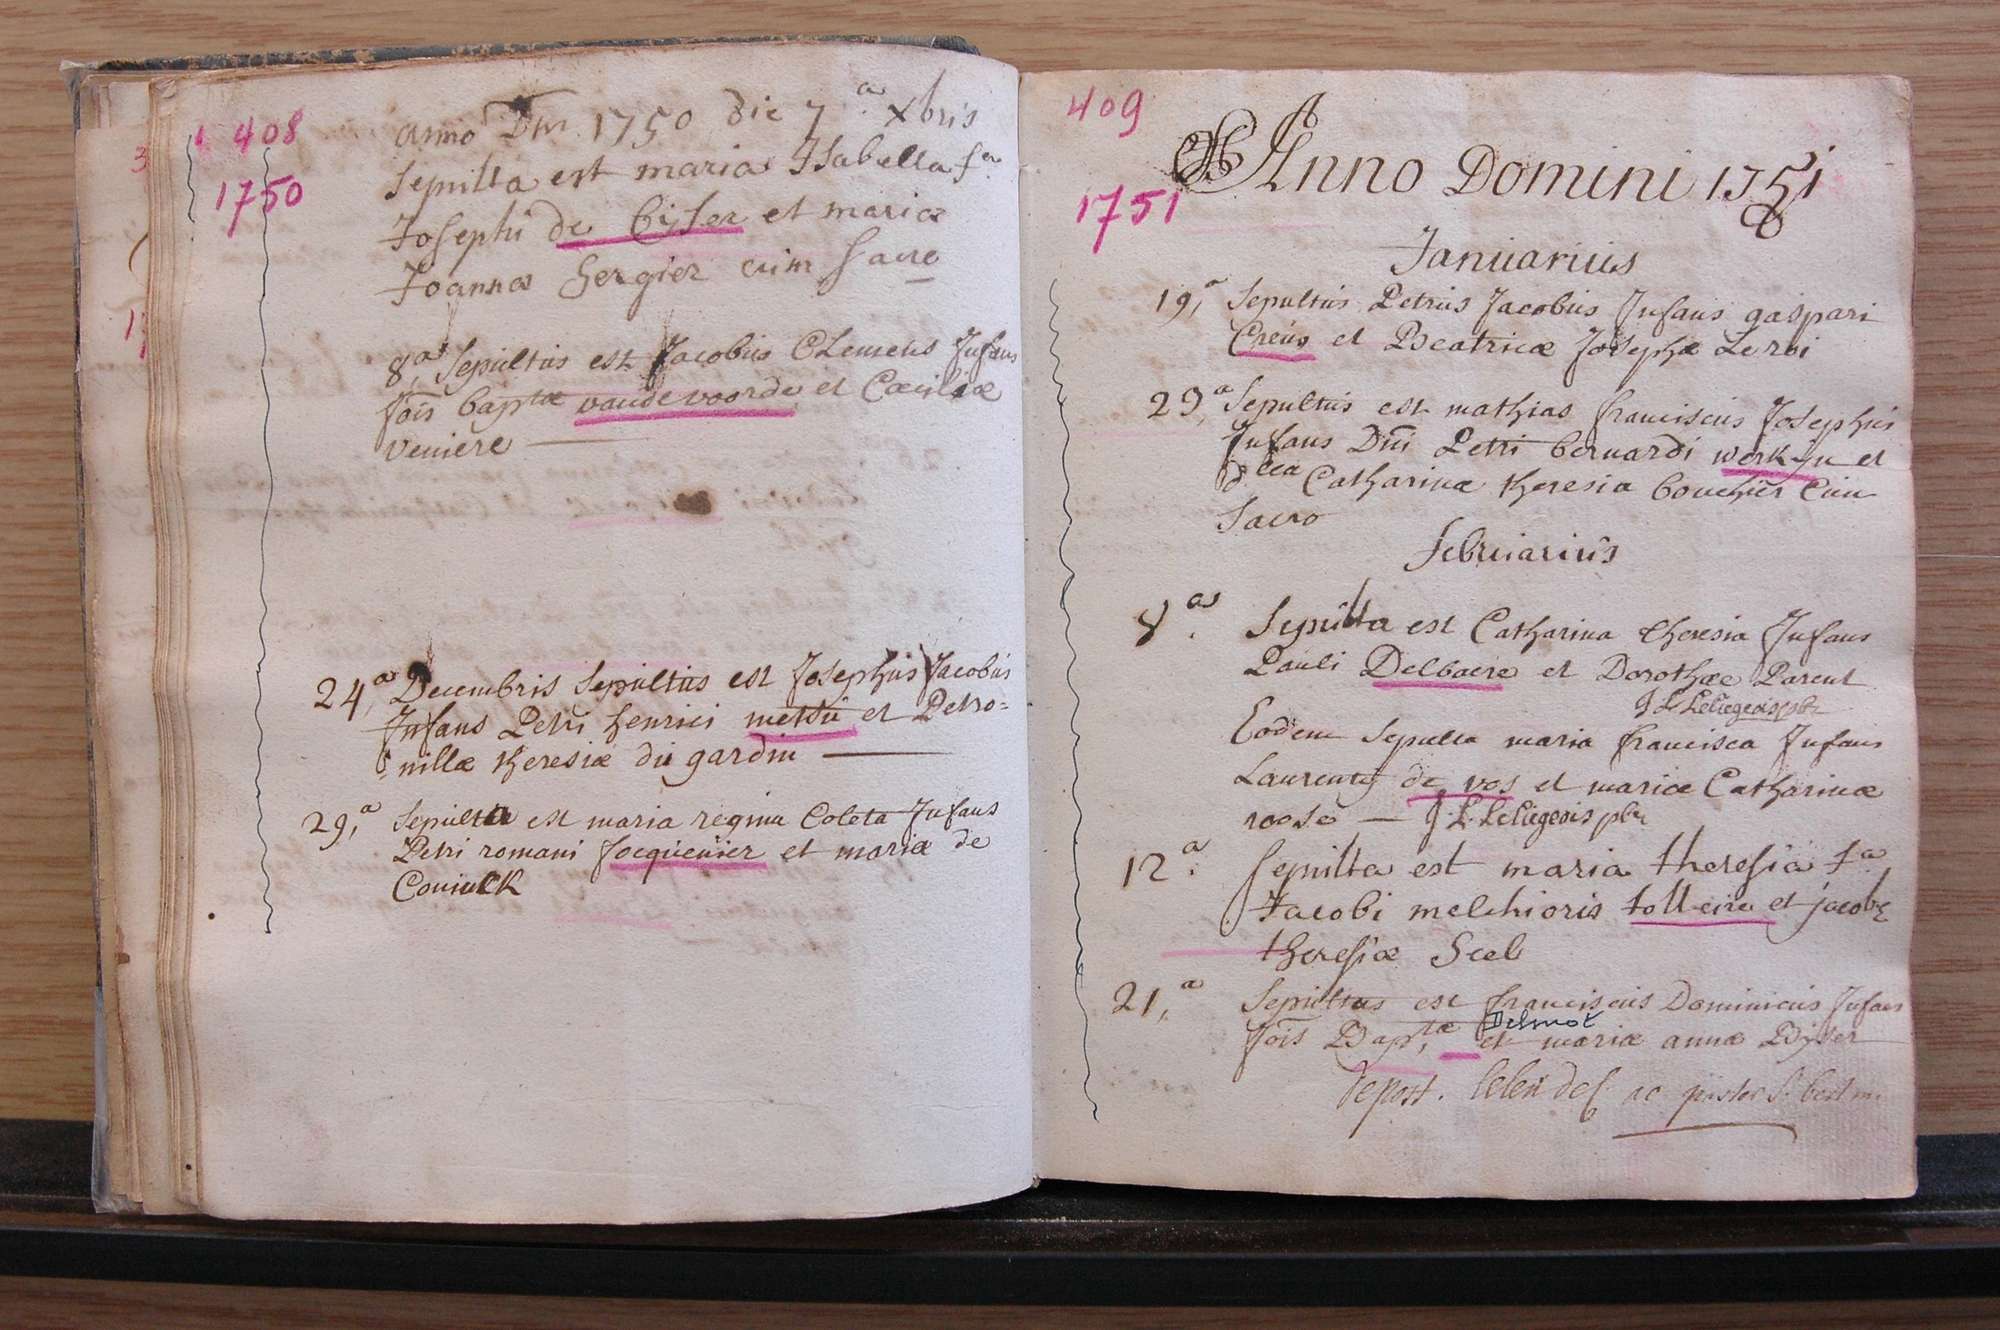 408
1750
anno Dni 1750 die 7.a Xbris
sepulta est maria Isabella f.a
Josephi de Cijser et mariæ
Joannæ Hergier cum sacro
8,a Sepultus est Jacobus Clemens Infans
Jois bap^tæ vandevoorde et Cæciliæ
veniere
24,a Decembris Sepultus est Josephus Jacobus
Infans Petri henrici mettu et Petro=
nillæ theresiæ du gardin
29,a Sepulta est maria regina Coleta Infans
Petri romani focquenier et mariæ de
Coninck
409
1751
Anno Domini 1751
Januarius
19,a Sepultus Petrus Jacobus Infans gaspari
Creus et Beatricæ Josephæ Leroi
29,a Sepultus est mathias franciscus Josephus
Infans Dni Petri bernardi werk-yn et
d.cea Catharina theresia bouchier Cum
Sacro
februarius
8.a Sepulta est Catharina theresia Infans
Pauli Delbaere et Dorothæe Parent
J L Leliegeois pbr
Eodem Sepulta maria francisca Infans
Laurentij de vos et mariæ Catharinæ
roose — J. L. Leliegeois pbr
12.a Sepulta est maria theresia f.a
Jacobi melchioris tolleire et jacobæ
theresiæ Seel
21,a Sepultus est franciscus Dominicus Infans
Delmot
Jois Bap,tæ et mariæ annæ